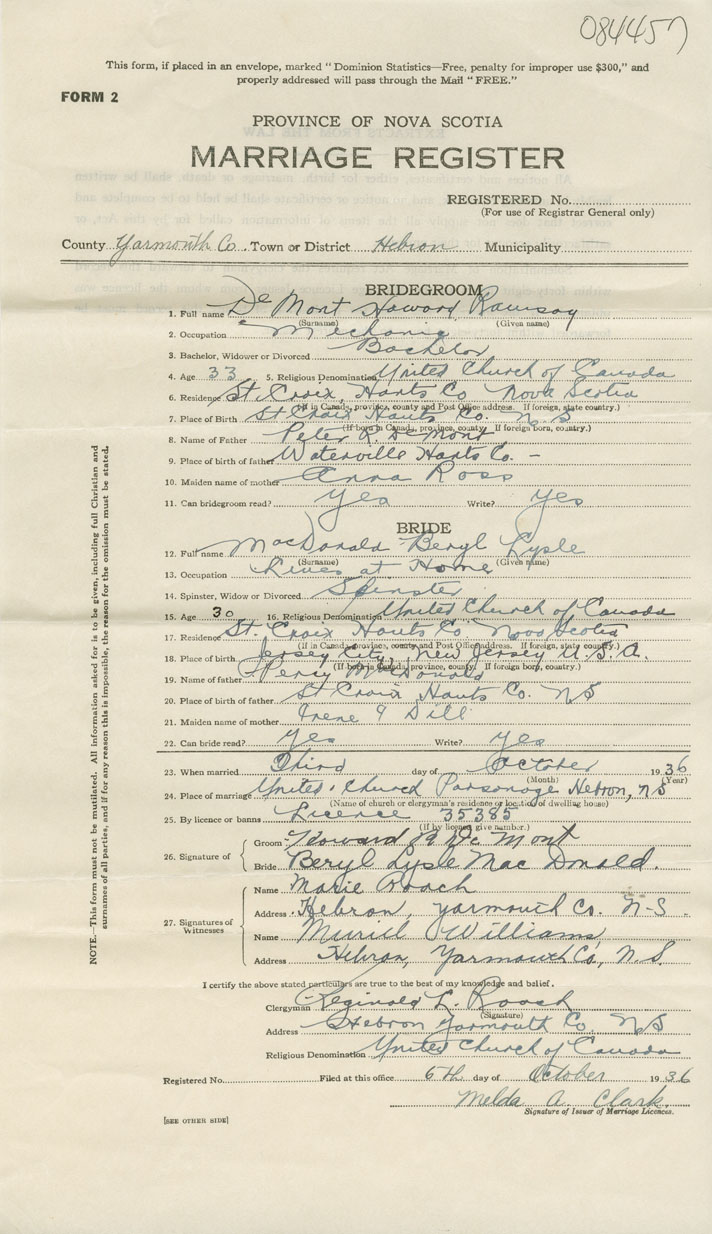 084457
This form, if placed in an envelope, marked "Dominion Statistics—Free, penalty for improper use $300," and
properly addressed will pass through the Mail "FREE."
FORM 2
PROVINCE OF NOVA SCOTIA
MARRIAGE REGISTER
REGISTERED No.
(For use of Registrar General only)
County Yarmouth Co. Town or District Hebron Municipality —
BRIDEGROOM
1. Full name De Mont Howard Ramsay
(Surname) (Given name)
2. Occupation Mechanic
3. Bachelor, Widower or Divorced Bachelor
4. Age 33 5. Religious Denomination United Church of Canada
6. Residence St. Croix, Hants Co Nova Scotia
(If in Canada, province, county and Post Office address. If foreign, state country.)
7. Place of Birth St Croix Hants Co. N.S
(If born in Canada, province, county. If foreign born, country.)
8. Name of Father Peter R. De Mont
9. Place of birth of father Waterville Hants Co. –
10. Maiden name of mother Anna Ross
11. Can bridegroom read? Yea Write? Yes
BRIDE
12. Full name MacDonald Beryl Lysle
(Surname) (Given name)
13. Occupation Lives at Home
14. Spinster, Widow or Divorced Spinster
15. Age 30 16. Religious Denomination United Church of Canada
17. Residence St. Croix Hants Co. Nova Scotia
(If in Canada, province, county and Post Office address. If foreign, state country.)
18. Place of birth Jersey City, New Jersey U.S.A.
(If born in Canada, province, county. If foreign born, country.)
19. Name of father Percy MacDonald
20. Place of birth of father St Croix Hants Co. NS
21. Maiden name of mother Irene Dill
22. Can bride read? Yes Write? Yes
23. When married Third day of October 1936
(Month) (Year)
24. Place of marriage United Church Parsonage Hebron, NS
(Name of church or clergyman's residence or location of dwelling house)
25. By licence or banns Licence 35385
(If by licence give number.)
26. Signature of
Groom Howard R De Mont
Bride Beryl Lysle Mac Donald.
27. Signatures of Witnesses
Name Marie Roach
Address Hebron, Yarmouth Co. N-S.
Name Muriel Williams
Address Hebron, Yarmouth Co., N.S.
I certify the above stated particulars are true to the best of my knowledge and belief.
Clergyman Reginald L. Roach
(Signature)
Address Hebron Yarmouth Co. NS
Religious Denomination United Church of Canada
Registered No. Filed at this office 6th day of October 1936
Melda A. Clark.
Signature of Issuer of Marriage Licences.
[SEE OTHER SIDE]
NOTE.—This form must not be mutilated. All information asked for is to be given, including full Christian and
surnames of all parties, and if for any reason this is impossible, the reason for the omission must be stated.